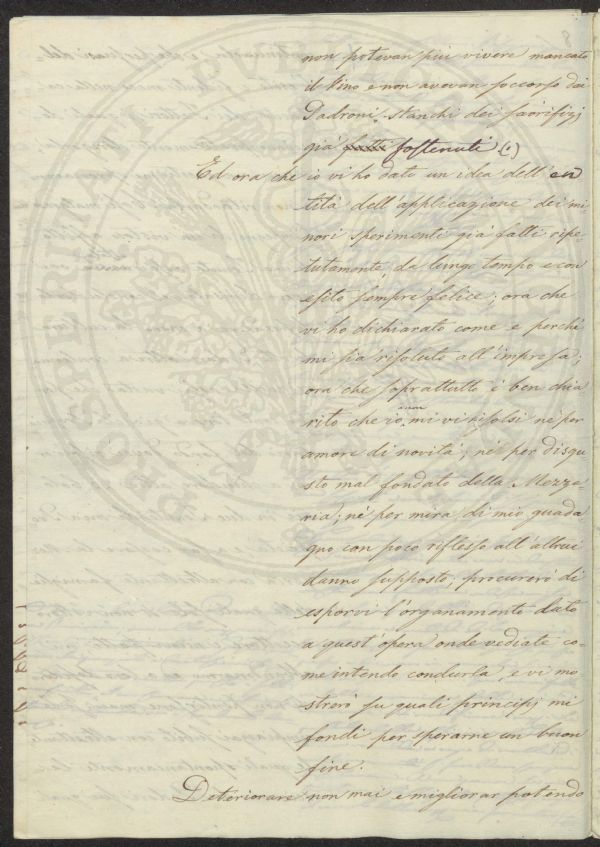 non potevan più vivere mancato
il Vino e non avevan soccorso dai
Padroni stanchi dei sacrifizj
già fatti sostenuti (1)
Ed ora che io vi ho dato un idea dell'en
tità dell'applicazione dei mi-
nori sperimenti già fatti ripe-
tutamente, da lungo tempo e con
esito sempre felice; ora che
vi ho dichiarato come e perchè
mi sia risoluto all'impresa;
ora che soprattutto è ben chia
rito che io non mi vi risolsi nè per
amore di novità; nè per disgu
sto mal fondato della Mezze-
ria; nè per mira di mio guada-
gno con poco riflesso all'altrui
danno supposto; procurerò di
esporvi l'organamento dato
a quest'opera onde vediate co-
me intendo condurla, e vi mo
strerò su quali principj mi
fondi per sperarne un buon
fine.
Deteriorare non mai e migliorar potendo
PROSPERITATI PVBLICAE